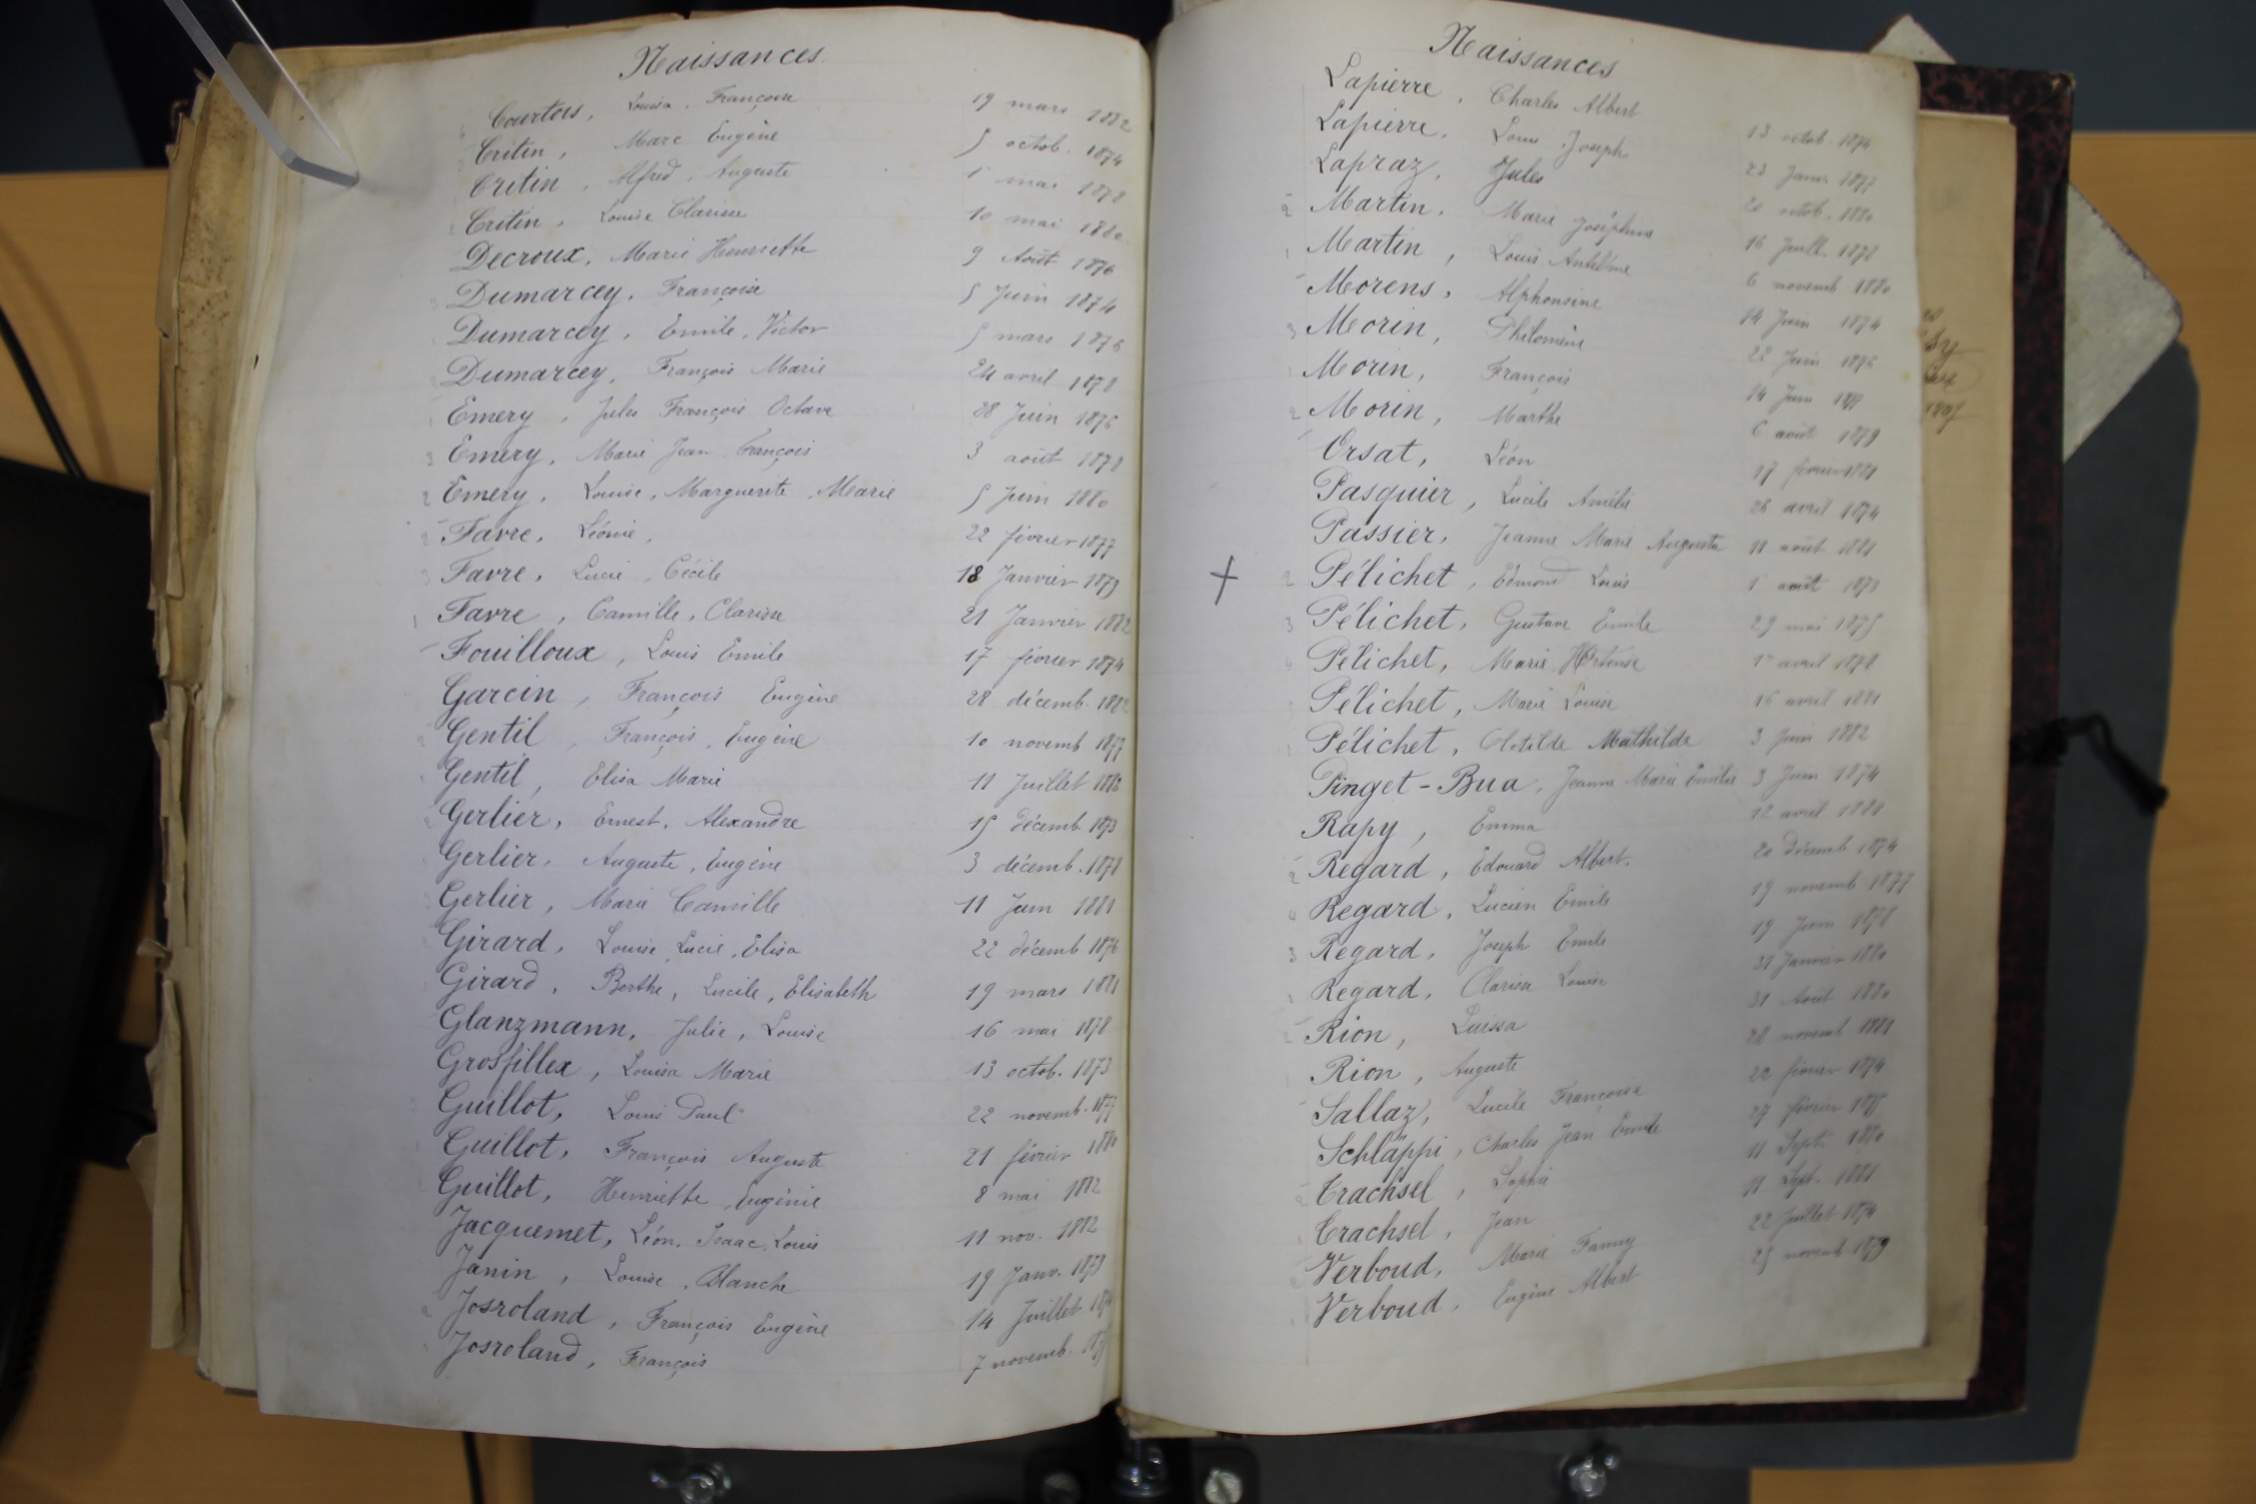 Naissances.
Courtois, Louisa, Françoise 19 mars 1882
Critin, Marc Eugène 5 octob. 1874
Critin, Alfred, Auguste 1 mai 1878
Critin, Louise Clarisse 10 mai 1880
Decroux, Marie Henriette 9 Août 1876
Dumarcey, Françoise 5 Juin 1874
Dumarcey, Emile, Victor 5 mars 1876
Dumarcey, François Marie 24 avril 1878
Emery, Jules François Octave 28 Juin 1876
3 Emery, Marie Jean François 3 août 1878
2 Emery, Louise, Marguerite, Marie 5 Juin 1880
Favre, Léonie, 22 février 1877
3 Favre, Lucie, Cécile 18 Janvier 1879
1 Favre, Camille, Clarisse 21 Janvier 1882
Fouilloux, Louis Emile 17 février 1874
Garcin, François Eugène 28 décemb. 1882
Gentil, François, Eugène 10 novemb 1877
Gentil, Elisa Marie 11 Juillet 1882
Gerlier, Ernest, Alexandre 15 décemb. 1873
Gerlier, Auguste, Eugène 3 décemb. 1878
Gerlier, Marie Camille 11 Juin 1881
Girard, Louise, Lucie, Elisa 22 décemb 1876
Girard, Berthe, Lucile, Elisabeth 19 mars 1881
Glanzmann, Julie, Louise 16 mai 1878
Grosfillex, Louisa Marie 13 octob. 1873
Guillot, Louis Paul 22 novemb. 1877
Guillot, François Auguste 21 février 1880
Guillot, Henriette, Eugénie 8 mai 1882
Jacquemet, Léon, Isaac, Louis 11 nov. 1882
Janin, Louise, Blanche 19 Janv. 1879
Josroland, François Eugène 14 Juillet
Josroland, François 7 novemb.
Naissances
Lapierre, Charles Albert 13 octob. 1874
Lapierre, Louis Joseph 23 Janv. 1877
Lapraz, Jules 20 octob. 1880
2 Martin, Marie Joséphine 16 Juill. 1878
1 Martin, Louis Antelme 6 novemb 1880
Morens, Alphonsine 14 Juin 1874
3 Morin, Philomène 22 Juin 1876
Morin, François 14 Juin
2 Morin, Marthe 6 août 1879
Orsat, Léon 17 février 1881
Pasquier, Lucile Amélie 26 avril 1874
Passier, Jeanne Marie Augusta 11 août 1881
2 Pélichet, Edmond Louis 1 août 1873
3 Pélichet, Gustave Emile 29 mai 1875
Pélichet, Marie Hortense 1er avril 1878
Pélichet, Marie Louise 16 avril 1881
1 Pélichet, Clotilde Mathilde 3 Juin 1882
Pinget-Bua, Jeanne Marie Emilie 3 Juin 1874
Rapy, Emma 12 avril 1881
2 Regard, Edouard Albert. 20 décemb 1874
Regard, Lucien Emile 19 novemb 1877
3 Regard, Joseph Emile 19 Juin 1878
Regard, Clarisse Louise 31 Janvier 1880
Rion, Luissa 31 Août 1880
Rion, Auguste 28 novemb 1881
Sallaz, Lucile Françoise 22 février 1874
Schläppi, Charles Jean Emile 27 février
Trachsel, Sophie 11 Sept. 1880
Trachsel, Jean 11 Sept. 1881
Verboud, Marie Fanny 22 Juillet 1874
Verboud, Eugène Albert 25 novemb 1879